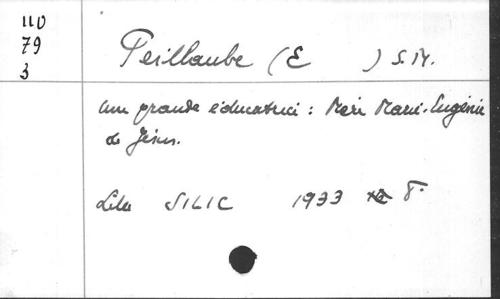 110
79
3
Peillaube (E ) S.M.
une grande éducatrice : Mère Marie-Eugénie
de Jésus.
Lille SILIC 1933 8°.